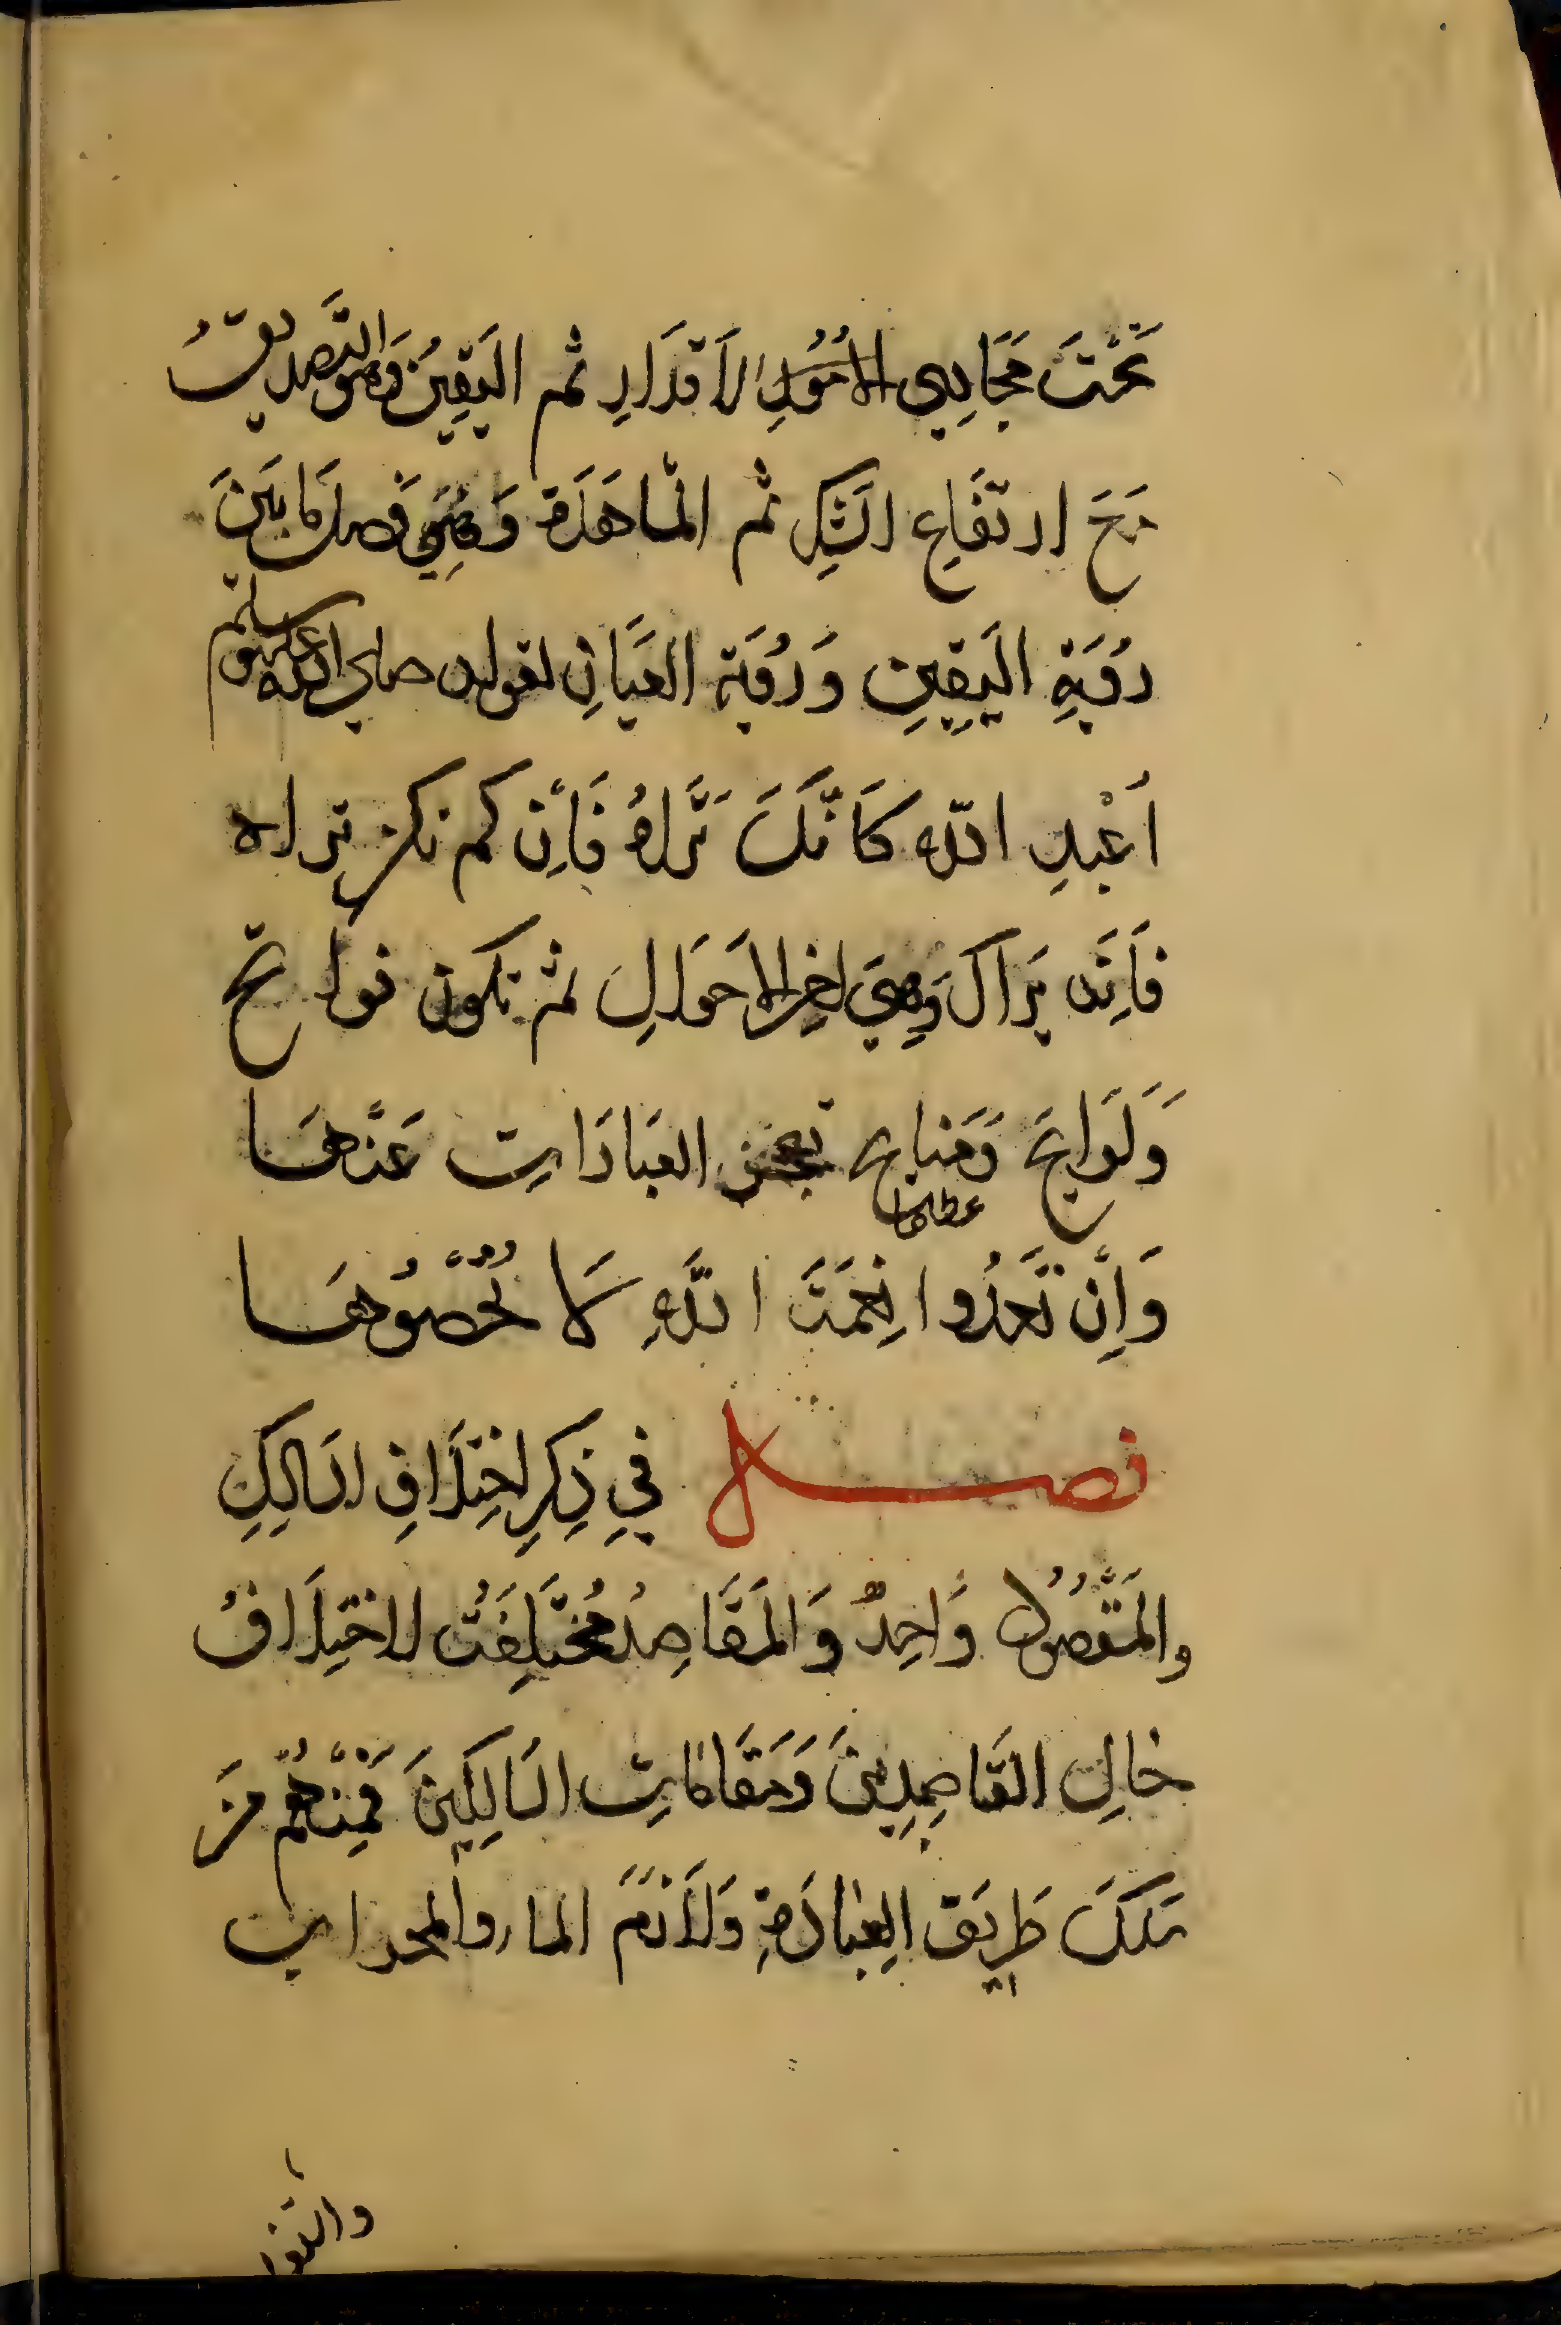 تَحْتَ مَجَارِي الامُورِ الاَقدَارِ ثم اليَقِينُ وَهُوَ التَّصدِيقُ
مَعَ ارتفَاعِ الشَكِ ثم المشاهَدَة وَهِيَ فَصل مَا بَينَ
رُويَةِ اليَقِينِ وَرُويَة العيَانِ لقوله صلي الله عليه وسلم
اَعْبُدِ الله كَانَّكَ تَرَاهُ فَاِن لم تكن تراه
فَاِنَه يَراكَ وَهِيَ اخِر الاَحوَالِ ثم تكون فواتح
وَلَوَايحَ وَمنايح تعجز العبَارَات عَنْهَا
عطاها
وَاِن تَعدُوا نِعمَتَ اللَّهِ لَا تُحْصُوهَا
فصل فِي ذِكرِ اختِلَافِ المسَالِكِ
والمَقْصُود وَاحِدٌ وَالمَقَاصِدُ مُختَلِفَتُ لاختِلَافِ
حَالِ القَاصِدِينَ وَمَقَامَاتِ السَالِكِينَ فَمِنْهُم مَن
سَلكَ طَرِيق العِبَادَةِ وَلَازَمَ الماء والمحراب
والنفوا